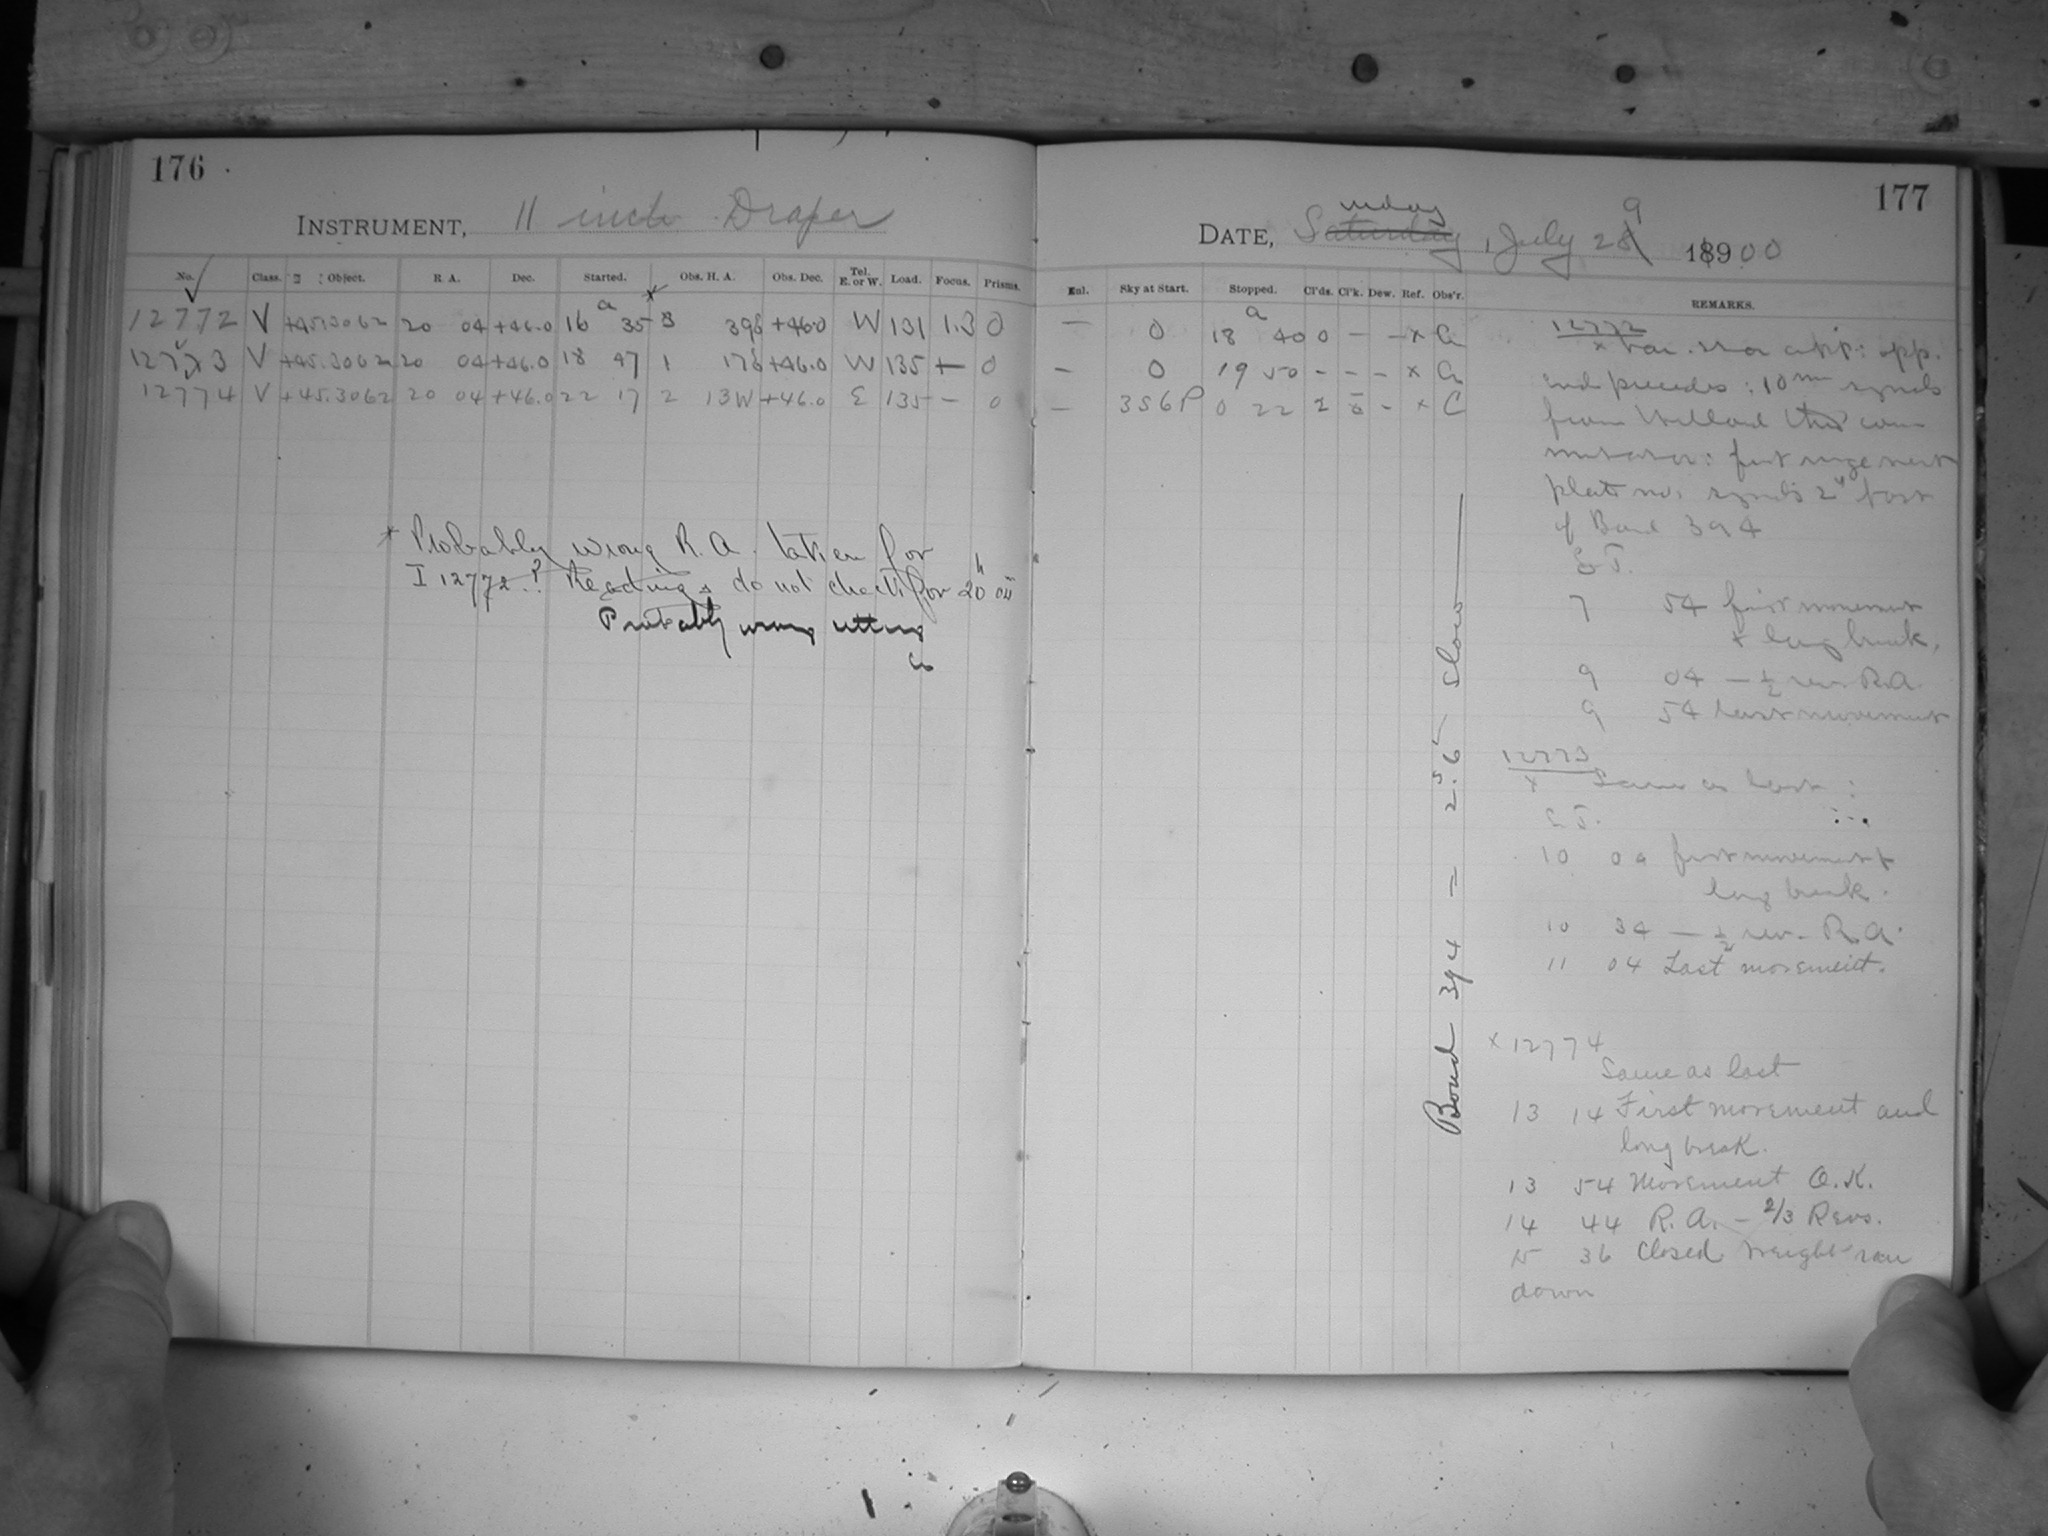 176
INSTRUMENT, 11 inch Draper
No. Class. Object. R. A. Dec. Started. Obs. H. A. Obs. Dec. Tel. E. or W. Load. Focus. Prisms.
12772 V +45.3062 20 04 +46.0 16 a 35 3 39E +46.0 W 131 1.3 0
12773 V +45.3062 20 04 +46.0 18 47 1 17E +46.0 W 135 — 0
12774 V +45.3062 20 04 +46.0 22 17 2 13W +46.0 E 135 - 0
* Probably wrong R. A. taken for
I 12772.? Readings do not check for 20h 04m
Probably wrong setting
177
DATE, Saturday unday, July 28 9 189000
Enl. Sky at Start. Stopped. Cl'ds. Cl'k. Dew. Ref. Obs'r. REMARKS.
— 0 18 a 40 0 - - x
- 0 19 50 - - - x
— 3S6P 0 22 2 - x C
12772
x
end precedes: 10m
from Willard
plate no. 2
of Bond 394
S. T.
7 54 first movement
+ long break.
9 04 — 1/2 rev. R.A.
9 54 last movement
12773
x Same as last:
S. T.
10 04 first movement +
long break.
10 34 — 1/2 rev. R.A.
11 04 Last movement.
x 12774
Same as last
13 14 First movement and
long break.
13 54 Movement O.K.
14 44 R.A. - 2/3 Revs.
15 36 Closed weight ran
down
Bond 394 = 2s.65 slow